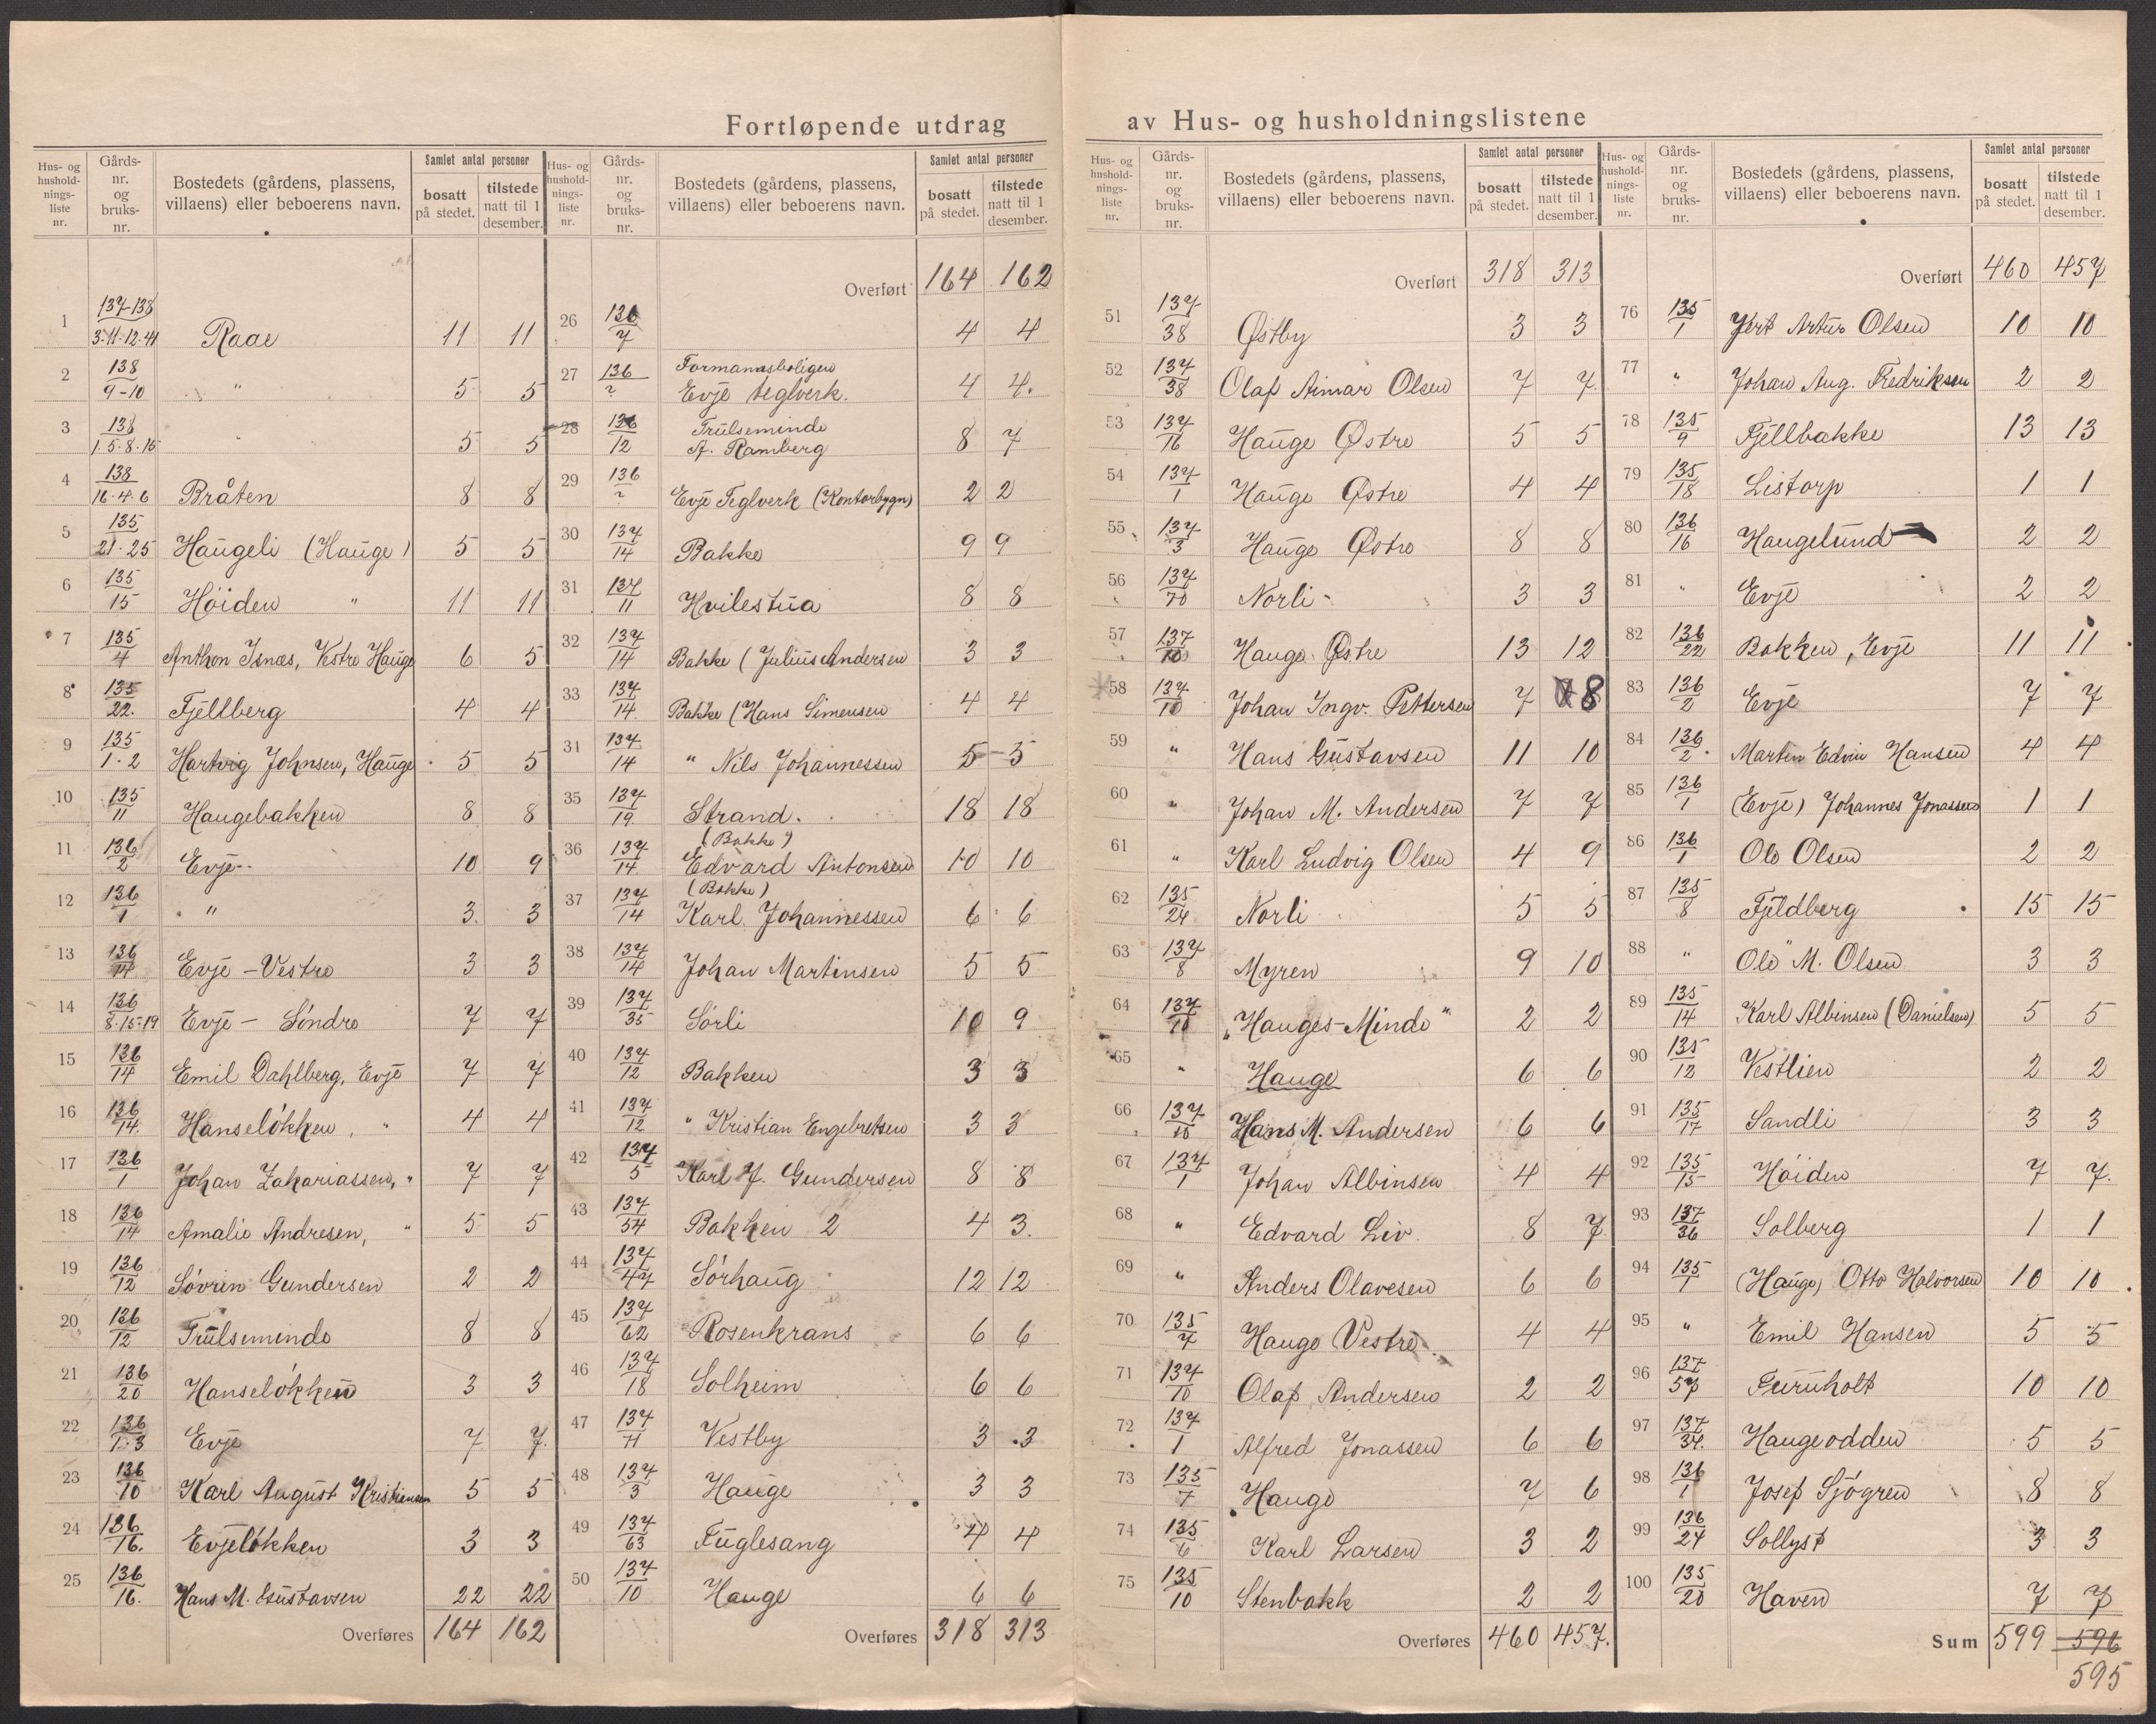 Fortløpende utdrag av Hus- og husholdningslistene
Hus- og husholdningsliste nr. | Gårds-nr. og bruks-nr. | Bostedets (gårdens, plassens, villaens) eller beboerens navn. | Samlet antal personer | bosatt på stedet. | tilstede natt til 1 desember.
1 137-138/3·11·12·41 Raae 11 11
2 138/9-10 " 5 5
3 138/1·5·8·15 " 5 5
4 138/16·4·6 Bråten 8 8
5 135/21·25 Haugeli (Hauge) 5 5
6 135/15 Höiden " 11 11
7 135/4 Anthon Isnæs, Vestre Hauge 6 5
8 135/22. Fjellberg 4 4
9 135/1·2 Hartvig Johnsen, Hauge 5 5
10 135/11 Haugebakken 8 8
11 136/2 Evje 10 9
12 136/1 " 3 3
13 136/14 Evje - Vestre 3 3
14 136/8·15·19 Evje - Söndre 7 7
15 136/14 Emil Dahlberg, Evje 7 7
16 136/14. Hanselökken, " 4 4
17 136/1 Johan Zakariassen, " 7 7
18 136/14 Amalie Andresen, " 5 5
19 136/12 Sövrin Gundersen 2 2
20 136/12 Trulseminde 8 8
21 136/20 Hanselökken 3 3
22 136/1·3 Evje 7 7
23 136/10 Karl August Kristiansen 5 5
24 136/16. Evjelökken 3 3
25 136/16. Hans M. Gustavsen 22 22
Overføres 164 162
Overført 164 162
26 136/7 4 4
27 136/? Formannsboligen Evje teglverk. 4 4.
28 136/12 Trulseminde A. Ramberg 8 7
29 136/? Evje Teglverk (Kontorbygn) 2 2
30 137/14 Bakke 9 9
31 137/11 Hvilestua 8 8
32 137/14 Bakke (Julius Andersen 3 3
33 137/14. Bakke (Hans Simensen 4 4
31 137/14 " Nils Johannessen 5 5
35 137/19 Strand. 18 18
36 137/14. (Bakke) Edvard Antonsen 10 10
37 137/14 (Bakke) Karl Johannessen 6 6
38 137/14 Johan Martinsen 5 5
39 137/35 Sörli 10 9
40 137/12 Bakken 3 3
41 137/12 " Kristian Engebretsen 3 3
42 137/5 Karl J. Gundersen 8 8
43 137/54 Bakken 2 4 3.
44 137/47 Sörhaug 12 12
45 137/62 Rosenkrans 6 6
46 137/18 Solheim 6 6
47 137/11 Vestby 3 3
48 137/3 Hauge 3 3
49 137/63 Fuglesang 4 4
50 137/10 Hauge 6 6
Overføres 318 313
Overført 318 313
51 137/38 Østby 3 3
52 137/38 Olaf Aimar Olsen 7 7
53 137/16 Hauge Østre 5 5
54 137/1 Hauge Østre 4 4
55 137/3 Hauge Østre 8 8
56 137/70 Norli 3 3
57 137/10 Hauge Østre 13 12
58 137/10 Johan Ingv. Pettersen 7 8
59 " Hans Gustavsen 11 10
60 " Johan M. Andersen 7 7
61 " Karl Ludvig Olsen 4 9
62 135/24 Norli 5 5
63 137/8 Myren 9 10
64 137/10 „Hauges-Minde" 2 2
65 " Hauge 6 6
66 137/10 Hans M. Andersen 6 6
67 137/1 Johan Albinsen 4 4
68 " Edvard Liv. 8 7
69 " Anders Olavesen 6 6
70 135/7 Hauge Vestre 4 4
71 137/10 Olaf Andersen 2 2
72 137/1 Alfred Jonassen 6 6
73 135/7 Hauge 7 6
74 135/6 Karl Larsen 3 2
75 135/10 Stenbakk 2 2
Overføres 460 457.
Overført 460 457
76 135/1 Artur Olsen 10 10
77 " Johan Aug. Fredriksen 2 2
78 135/9 Fjellbakke 13 13
79 135/18 Listorp 1 1
80 136/16 Haugelund 2 2
81 " Evje 2 2
82 136/22 Bakken, Evje 11 11
83 136/2 Evje 7 7
84 136/2. Martin Edvin Hansen 4 4
85 136/1 (Evje) Johannes Jonassen 1 1
86 136/1 Ole Olsen 2 2
87 135/8 Fjeldberg 15 15
88 " Ole M. Olsen 3 3
89 135/14 Karl Albinsen (Danielsen) 5 5
90 135/12 Vestlien 2 2
91 135/17 Sandli 3 3
92 135/15 Höiden 7 7.
93 137/36 Solberg 1 1
94 135/1 (Hauge) Otto Halvorsen 10 10
95 " Emil Hansen 5 5
96 137/57 Furuholt 10 10
97 137/34. Haugeodden 5 5
98 136/1 Josef Sjögren 8 8
99 136/24 Sollyst 3 3
100 135/20 Haven 7 7
Sum 599 596
595